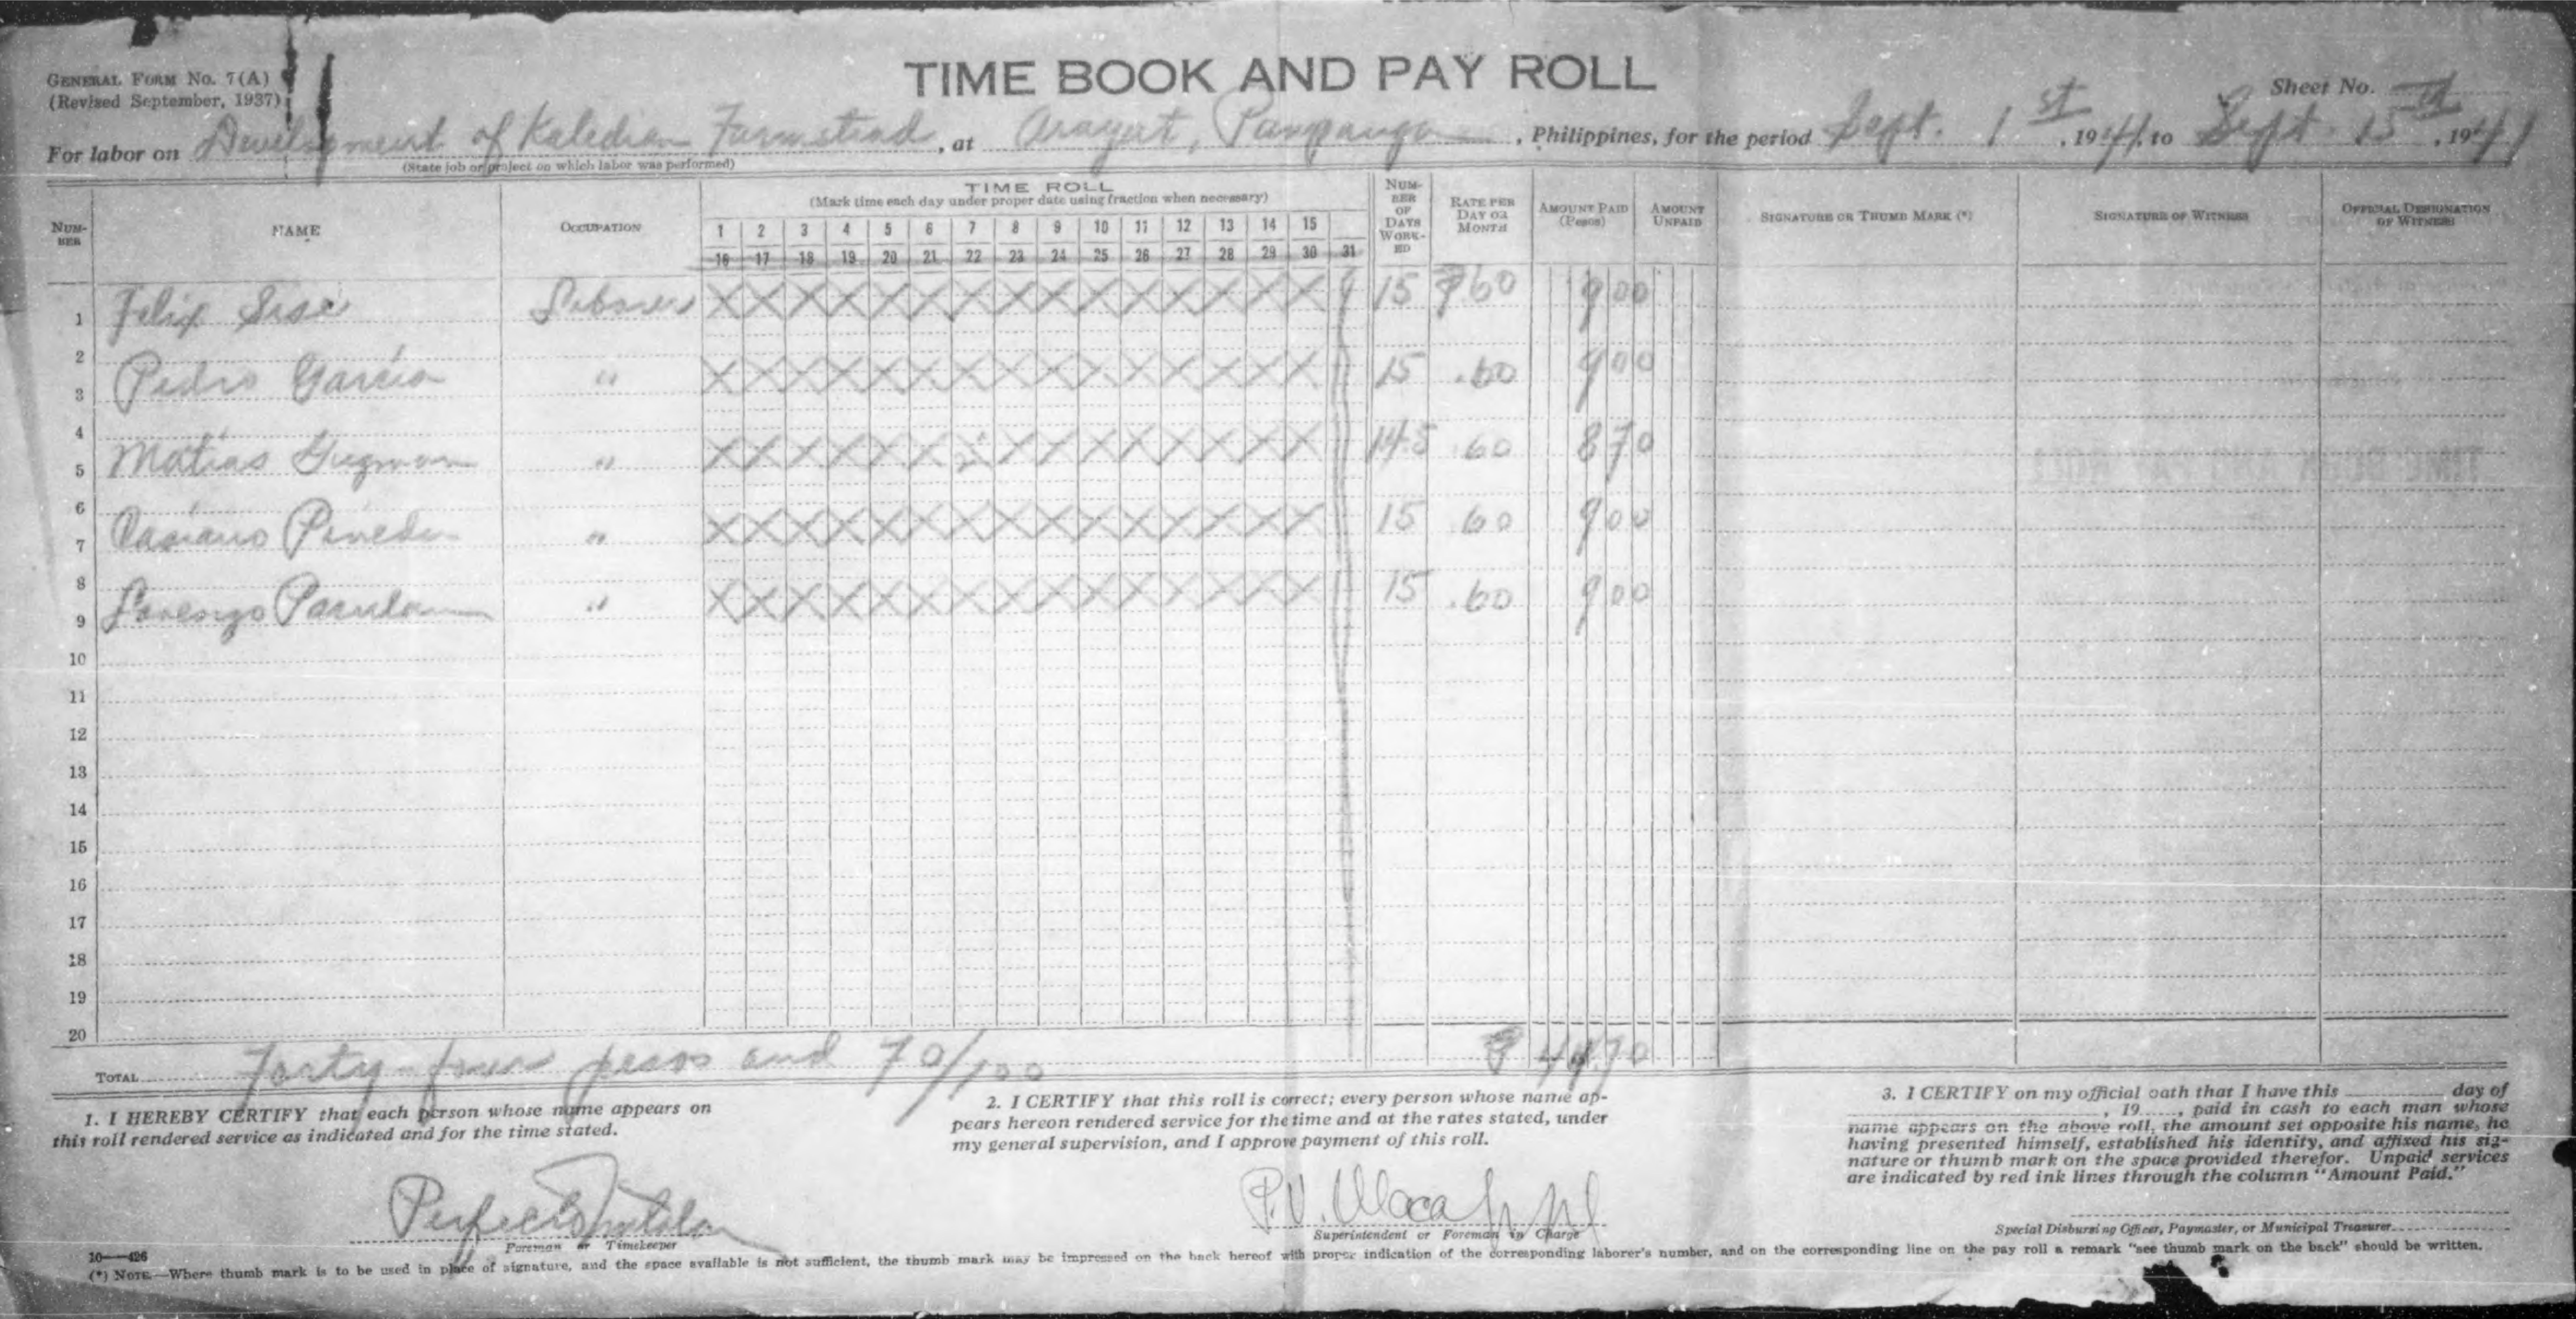 GENERAL FORM No. 7(A)
(Revised September, 1937)
TIME BOOK AND PAY ROLL
Sheet No.
For labor on Development of Kaledian Farmstead, at Arayat, Pampanga, Philippines, for the period Sept. 1st, 1941, to Sept. 15th, 1941
(State job or project on which labor was performed)
NUMBER
NAME
OCCUPATION
TIME ROLL
(Mark time each day under proper date using fraction when necessary)
1 2 3 4 5 6 7 8 9 10 11 12 13 14 15
16 17 18 19 20 21 22 23 24 25 26 27 28 29 30 31
NUMBER OF DAYS WORKED
RATE PER DAY OR MONTH
AMOUNT PAID (Pesos)
AMOUNT UNPAID
SIGNATURE OR THUMB MARK (*)
SIGNATURE OF WITNESS
OFFICIAL DESIGNATION OF WITNESS
1 Felix Sese Laborer X X X X X X X X X X X X X X X 15 ₱60 9 00
2
3 Pedro Garcia " X X X X X X X X X X X X X X X 15 .60 9 00
4
5 Matias Guzman " X X X X X X X X X X X X X X 14.5 60 8 70
6
7 Casiano Pineda " X X X X X X X X X X X X X X X 15 60 9 00
8
9 Lorenzo Parulan " X X X X X X X X X X X X X X X 15 .60 9 00
10
11
12
13
14
15
16
17
18
19
20
TOTAL Forty-four pesos and 70/100 ₱ 44 70
1. I HEREBY CERTIFY that each person whose name appears on
this roll rendered service as indicated and for the time stated.
Perfecto
Foreman or Timekeeper
2. I CERTIFY that this roll is correct; every person whose name ap-
pears hereon rendered service for the time and at the rates stated, under
my general supervision, and I approve payment of this roll.
P.V.
Superintendent or Foreman in Charge
3. I CERTIFY on my official oath that I have this day of
, 19 , paid in cash to each man whose
name appears on the above roll, the amount set opposite his name, he
having presented himself, established his identity, and affixed his sig-
nature or thumb mark on the space provided therefor. Unpaid services
are indicated by red ink lines through the column "Amount Paid."
Special Disbursing Officer, Paymaster, or Municipal Treasurer
10—426
(*) NOTE.—Where thumb mark is to be used in place of signature, and the space available is not sufficient, the thumb mark may be impressed on the back hereof with proper indication of the corresponding laborer's number, and on the corresponding line on the pay roll a remark "see thumb mark on the back" should be written.